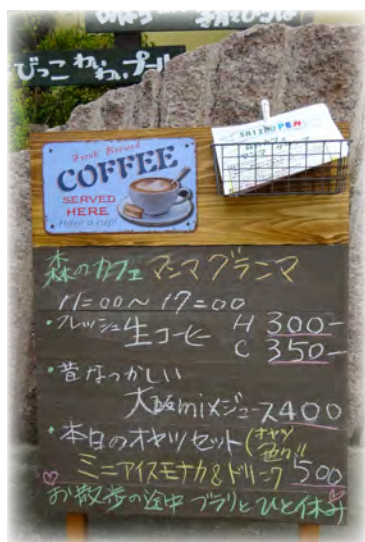 びっこ わいわいプール
OPEN
Fresh Brewed
COFFEE
SERVED
HERE
Have a cup!
森のカフェ マンマ グランマ
11=00〜17=00
・フレッシュ生コーヒー H 300-
C 350-
・昔なつかしい
大阪mixジュース400
・本日のオヤツセット(オヤツ
ミニアイスモナカ&ドリンク 500
お散歩の途中 ブラリと ひと休み